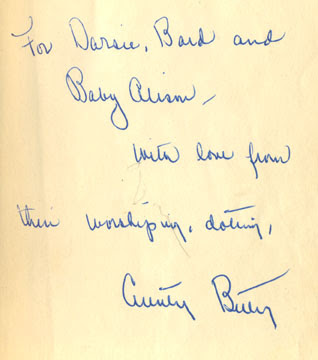 For Darsie, Bard and
Baby Alison —
with love from
their worshiping, doting,
Aunty Betty